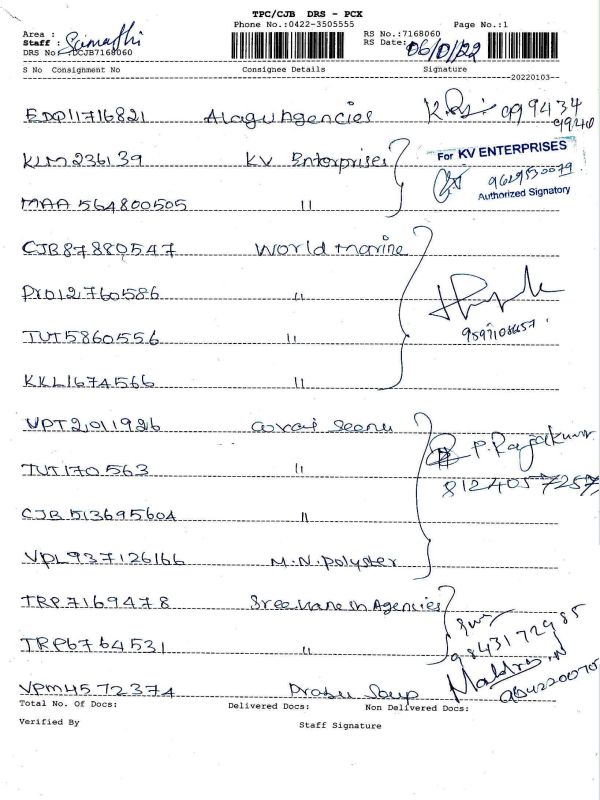 TPC/CJB DRS - PCX
Phone No.:0422-3505555 Page No.:1
Area :
Staff :
RS No.:7168060
DRS No.:DCJB7168060 RS Date: 06/01/22
S No Consignment No Consignee Details Signature
20220103
EDP11716821 Alagu Agencies
KLM236139 KV Enterprises For KV ENTERPRISES
9629530079
Authorized Signatory
MAA 564800505 "
CJB87880547 World marine
PYD12760586 "
TUT5860556 "
KKL1674566 "
VPT2011926
TUT170563 " P. Rajakumar
8124057257
CJB 513695604 "
VPL937126166 M.N. Polyster
TRP7169478 Agencies
9843172985
TRP6764531 "
VPM4572374 Prabu Soup
Total No. Of Docs: Delivered Docs: Non Delivered Docs:
Verified By Staff Signature